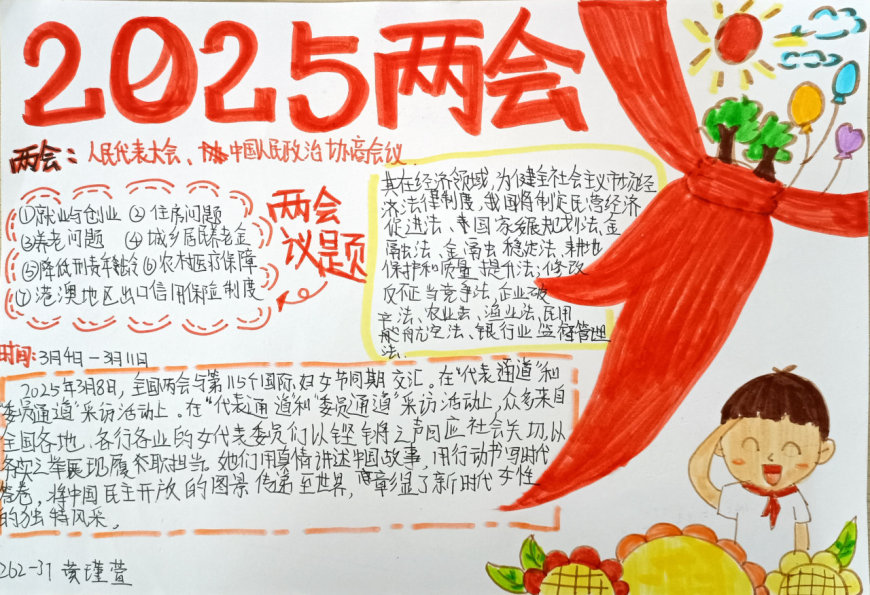 2025两会
两会：人民代表大会、中国人民政治协商会议.
①就业与创业 ② 住房问题
③养老问题 ④ 城乡居民养老金
⑤降低刑责年龄 ⑥ 农村医疗保障
⑦ 港澳地区出口信用保险制度
两会
议题
其在经济领域,为健全社会主义市场经
济法律制度,我国将制定民营经济
促进法、国家发展规划法、金
融法、金融稳定法、耕地
保护和质量提升法;修改
反不正当竞争法,企业破
产法、农业法、渔业法、民用
航空法、银行业监督管理
法.
时间:3月4日－3月11日
2025年3月8日,全国两会与第115个国际妇女节同期交汇。在“代表通道”和
“委员通道”采访活动上。在“代表通道”和“委员通道”采访活动上,众多来自
全国各地、各行各业的女代表委员们以铿锵之声回应社会关切,以
之举展现履职担当。她们用真情讲述中国故事,用行动书写时代
答卷,将中国民主开放的图景传递至世界,彰显了新时代女性
的独特风采。
262-37 黄瑾萱